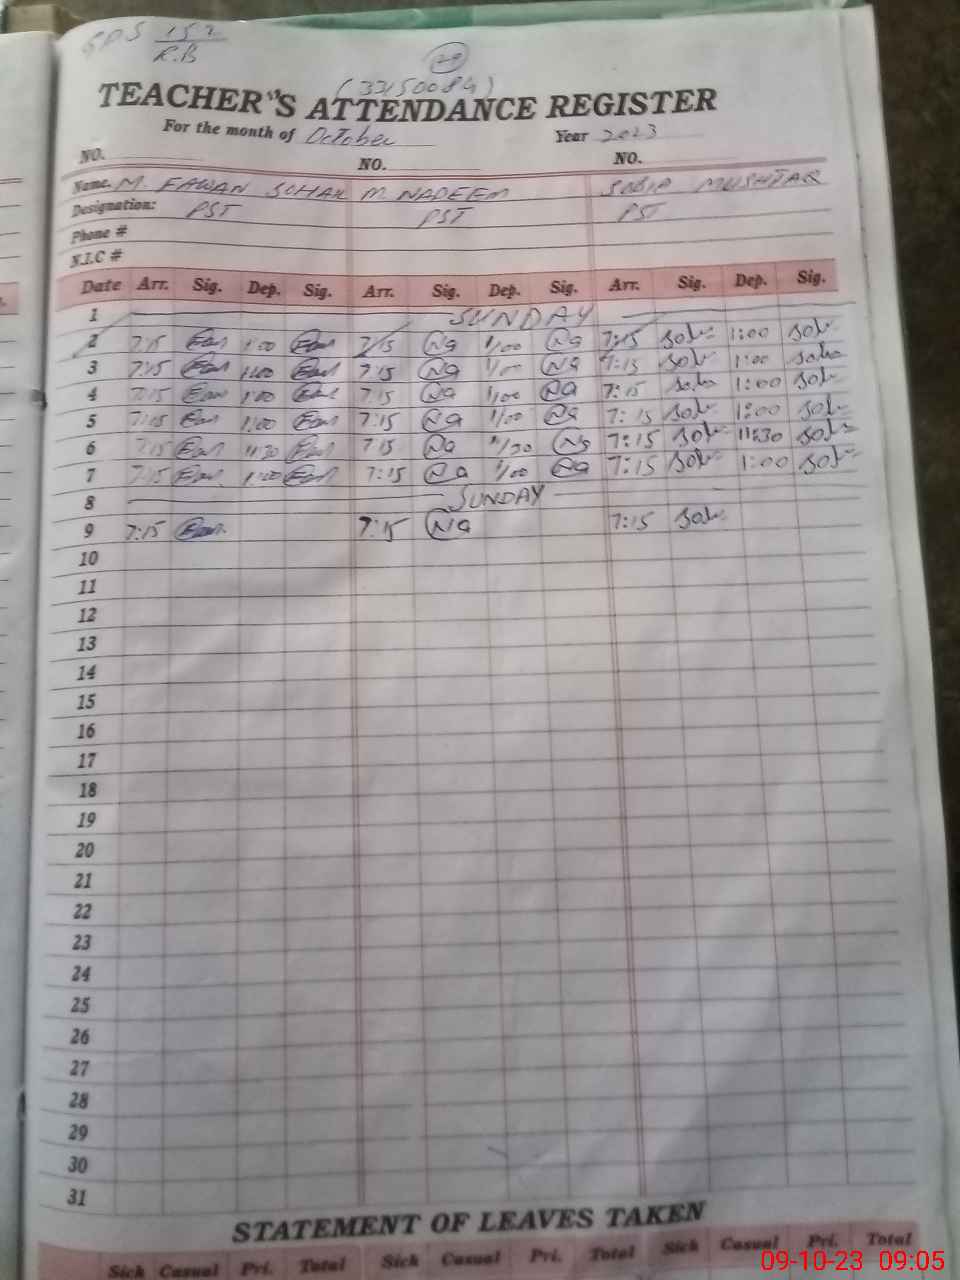 GPS 152
R.B
29
(33150084)
TEACHER'S ATTENDANCE REGISTER
For the month of October Year 2023
NO. NO. NO.
Name. M. FAWAN SOHAIL M. NADEEM SOBIA MUSHTAR
Designation: PST PST PST
Phone #
N.I.C #
Date Arr. Sig. Dep. Sig. Arr. Sig. Dep. Sig. Arr. Sig. Dep. Sig.
1 SUNDAY
2 7:15 1:00 7:15 Na 1/00 Na 7:15 1:00
3 7:15 1:00 7:15 Na 1/00 Na 7:15 1:00
4 7:15 1:00 7:15 Na 1/00 Na 7:15 1:00
5 7:15 1:00 7:15 Na 1/00 Na 7:15 1:00
6 7:15 11:30 7:15 Na Na 7:15 11:30
7 7:15 1:00 7:15 Na 1/00 Na 7:15 1:00
8 SUNDAY
9 7:15 7:15 Na 7:15
10
11
12
13
14
15
16
17
18
19
20
21
22
23
24
25
26
27
28
29
30
31
STATEMENT OF LEAVES TAKEN
Sick Casual Pri. Total Sick Casual Pri. Total Sick Casual Pri. Total
09-10-23 09:05